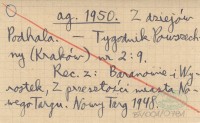 ag. 1950. Z dziejów
Podhala. — Tygodnik Powszech
ny (Kraków) nr 2: 9.
Rec. z: Baranowie i Wy
rostek, Z przeszłości miasta No
wego Targu. Nowy Targ 1948.